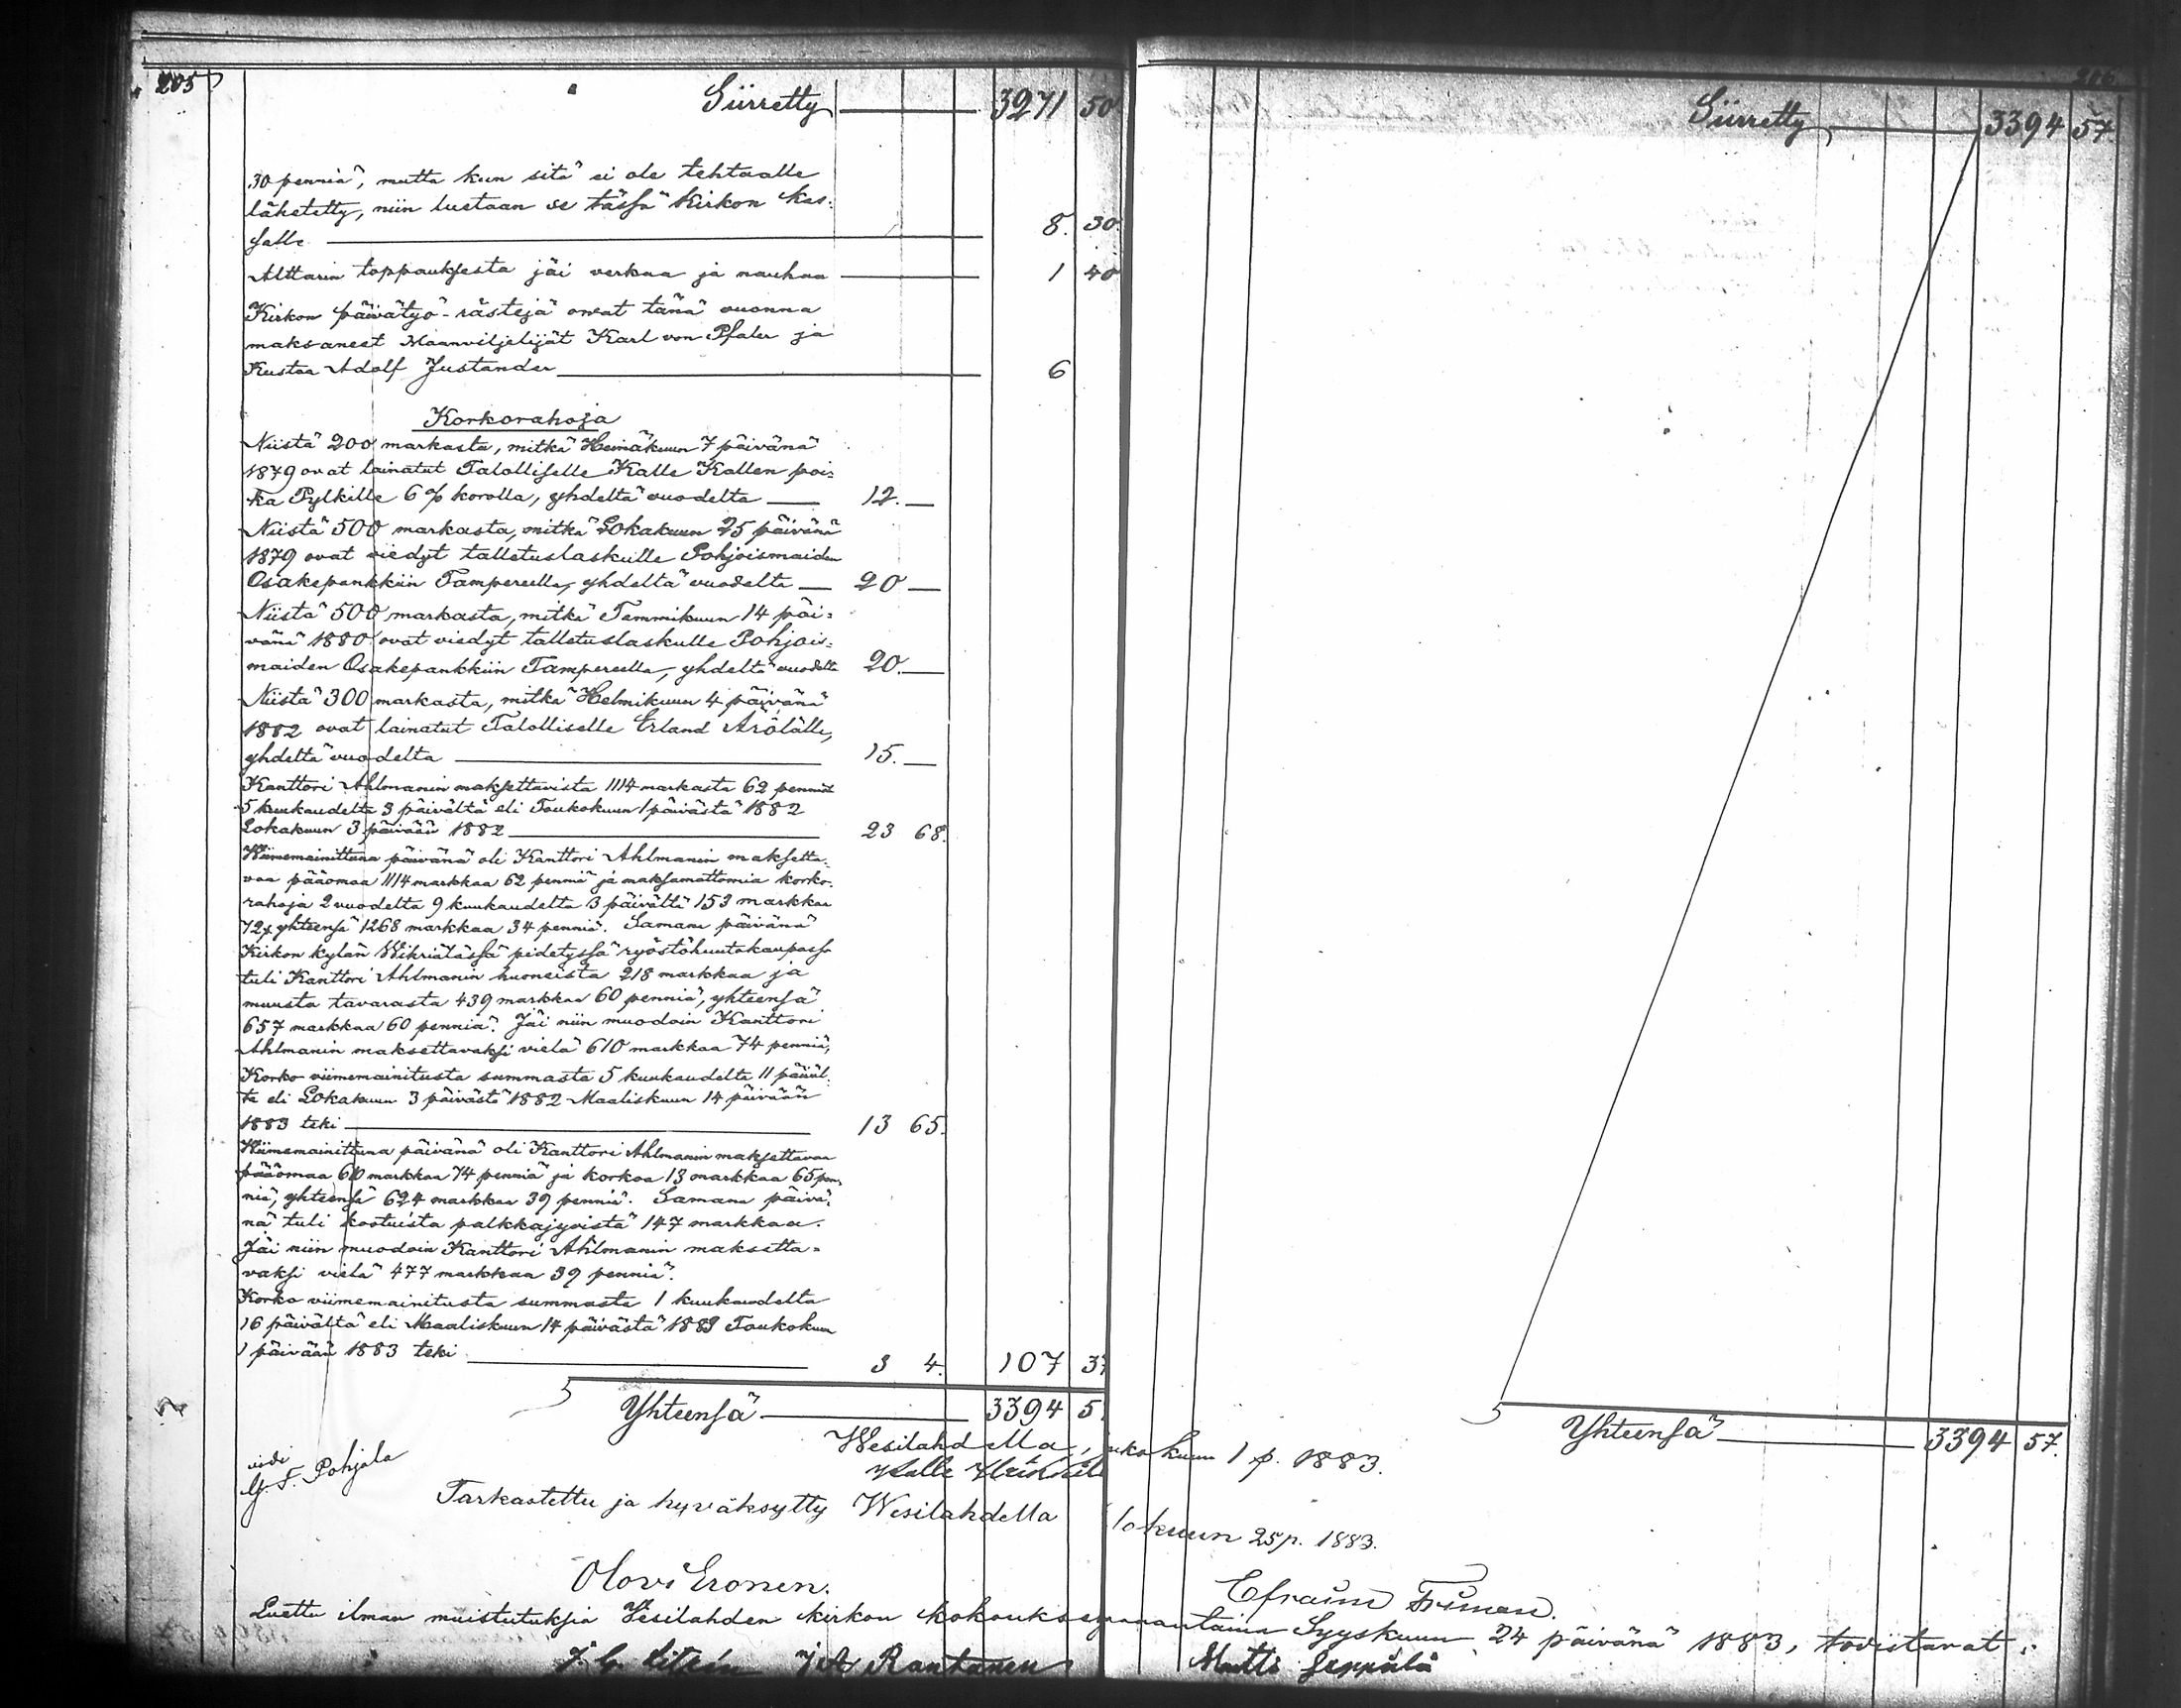 205
Siirretty 3271 50
30 penniä, mutta kun sitä ei ole tehtaalle
lähetetty, niin luetaan se tässä Kirkon kas-
salle 8. 30.
Alttarin toppauksesta jäi verkaa ja nauhaa 1 40
Kirkon päivätyö-rästejä ovat tänä vuonna
maksaneet Maanviljelijät Karl von Pfaler ja
Kustaa Adolf Justander 6
Korkorahoja
Niistä 200 markasta, mitkä Heinäkuun 7 päivänä
1879 ovat lainatut Talolliselle Kalle Kallen poi-
ka Pylkille 6 % korolla, yhdeltä vuodelta 12. —
Niistä 500 markasta, mitkä Lokakuun 25 päivänä
1879 ovat viedyt talletuslaskulle Pohjoismaiden
Osakepankkiin Tampereella, yhdeltä vuodelta 20 —
Niistä 500 markasta, mitkä Tammikuun 14 päi-
vänä 1880 ovat viedyt talletuslaskulle Pohjois-
maiden Osakepankkiin Tampereella, yhdeltä vuodelta 20. —
Niistä 300 markasta, mitkä Helmikuun 4 päivänä
1882 ovat lainatut Talolliselle Erland Ärölälle,
yhdeltä vuodelta 15. —
Kanttori Ahlmanin maksettavista 1114 markasta 62 penniä
5 kuukaudelta 3 päivältä eli Toukokuun 1 päivästä 1882
Lokakuun 3 päivään 1882 23 68.
Wiimemainittuna päivänä oli Kanttori Ahlmanin maksetta-
vaa pääomaa 1114 markkaa 62 penniä ja maksamattomia korko-
rahoja 2 vuodelta 9 kuukaudelta 3 päivältä 153 markkaa
72 p yhteensä 1268 markkaa 34 penniä. Samana päivänä
Kirkon kylän Wihriälässä pidetyssä ryöstöhuutokaupassa
tuli Kanttori Ahlmanin huoneista 218 markkaa ja
muusta tavarasta 439 markkaa 60 penniä, yhteensä
657 markkaa 60 penniä. Jäi niin muodoin Kanttori
Ahlmanin maksettavaksi vielä 610 markkaa 74 penniä,
Korko viimemainitusta summasta 5 kuukaudelta 11 päiväl-
tä eli Lokakuun 3 päivästä 1882 Maaliskuun 14 päivään
1883 teki 13 65.
Wiimemainittuna päivänä oli Kanttori Ahlmanin maksettavaa
pääomaa 610 markkaa 74 penniä ja korkoa 13 markkaa 65 pen-
niä, yhteensä 624 markkaa 39 penniä. Samana päivä-
nä tuli kootuista palkkajyvistä 147 markkaa.
Jäi niin muodoin Kanttori Ahlmanin maksetta-
vaksi vielä 477 markkaa 39 penniä.
Korko viimemainitusta summasta 1 kuukaudelta
16 päivältä eli Maaliskuun 14 päivästä 1883 Toukokuun
1 päivään 1883 teki 3 4. 107 37
Yhteensä 3394 5
206
Siirretty 3394 57.
Yhteensä 3394 57.
Wesilahdella, ukokuun 1 p. 1883.
Kalle Heikkilä
vidi
G. F. Pohjala
Tarkastettu ja hyväksytty Wesilahdella lokuun 25 p. 1883.
Olovi Eronen. Efraim Friman.
Luettu ilman muistutuksia Vesilahden kirkon kokouksessa maanantaina Syyskuun 24 päivänä 1883, todistavat:
J. G. Litzén J A Rantanen Matti Seppälä